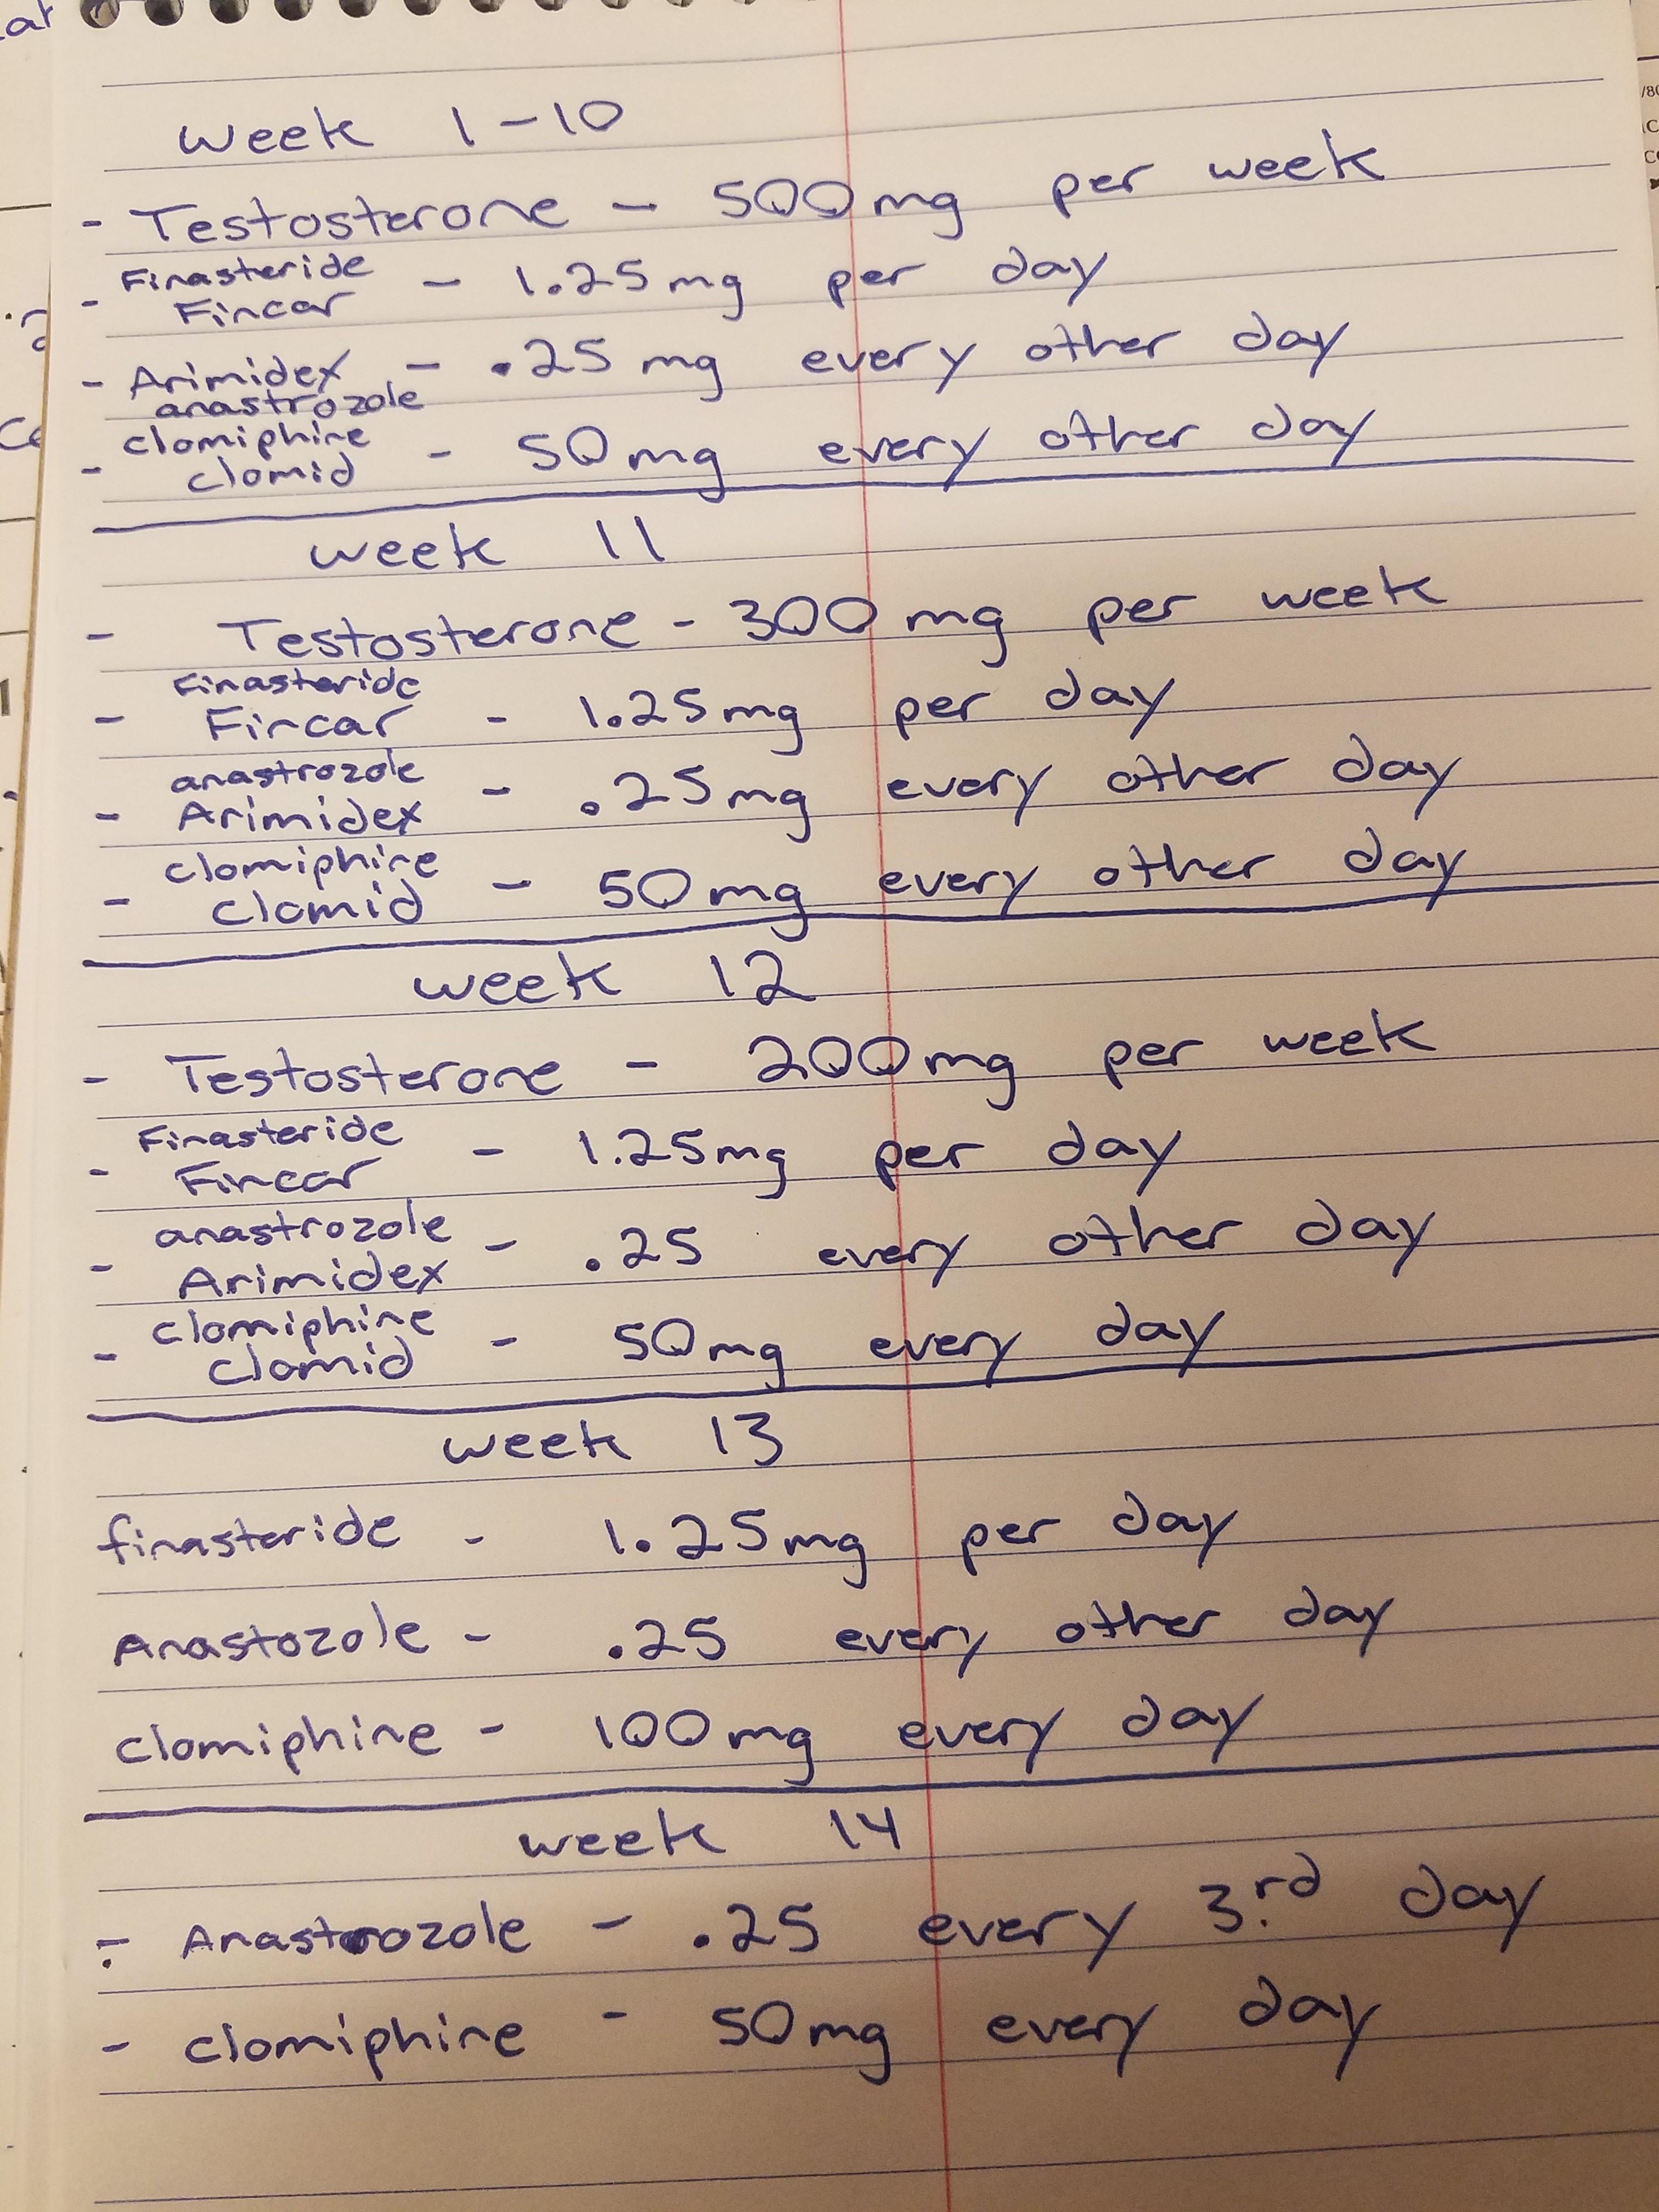 week 1-10
- Testosterone - 500mg per week
Finasteride
- Fincar - 1.25mg per day
- Arimidex - .25mg every other day
anastrozole
clomiphine
- clomid - 50mg every other day
week 11
- Testosterone - 300mg per week
Finasteride
- Fincar - 1.25mg per day
anastrozole
- Arimidex - .25mg every other day
clomiphine
- clomid - 50mg every other day
week 12
- Testosterone - 200mg per week
Finasteride
- Fincar - 1.25mg per day
anastrozole
- Arimidex - .25 every other day
clomiphine
- clomid - 50mg every day
week 13
finasteride - 1.25mg per day
Anastozole - .25 every other day
clomiphine - 100mg every day
week 14
- Anastrozole - .25 every 3rd day
- clomiphine - 50mg every day